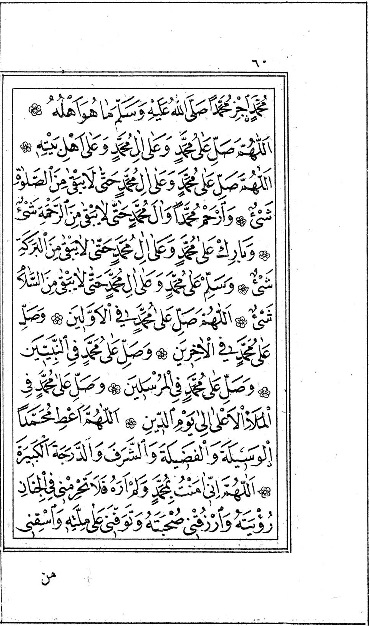 ٦٠
مُحَمَّدٍ اَجْزِ مُحَمَّدًا صَلَّى اللهُ عَلَيْهِ وَسَلَّمَ مَا هُوَ اَهْلُهُ ۞
اَللّٰهُمَّ صَلِّ عَلٰى مُحَمَّدٍ وَعَلٰى اٰلِ مُحَمَّدٍ وَعَلٰى اَهْلِ بَيْتِهِ ۞
اَللّٰهُمَّ صَلِّ عَلٰى مُحَمَّدٍ وَعَلٰى اٰلِ مُحَمَّدٍ حَتّٰى لَا يَبْقٰى مِنَ الصَّلٰوةِ
شَىْءٌ ۞ وَارْحَمْ مُحَمَّدًا وَاٰلَ مُحَمَّدٍ حَتّٰى لَا يَبْقٰى مِنَ الرَّحْمَةِ شَىْءٌ
۞ وَبَارِكْ عَلٰى مُحَمَّدٍ وَعَلٰى اٰلِ مُحَمَّدٍ حَتّٰى لَا يَبْقٰى مِنَ الْبَرَكَةِ
شَىْءٌ ۞ وَسَلِّمْ عَلٰى مُحَمَّدٍ وَعَلٰى اٰلِ مُحَمَّدٍ حَتّٰى لَا يَبْقٰى مِنَ السَّلَامِ
شَىْءٌ ۞ اَللّٰهُمَّ صَلِّ عَلٰى مُحَمَّدٍ فِى الْاَوَّلِينَ ۞ وَصَلِّ
عَلٰى مُحَمَّدٍ فِى الْاٰخِرِينَ ۞ وَصَلِّ عَلٰى مُحَمَّدٍ فِى النَّبِيِّينَ
۞ وَصَلِّ عَلٰى مُحَمَّدٍ فِى الْمُرْسَلِينَ ۞ وَصَلِّ عَلٰى مُحَمَّدٍ فِى
الْمَلَاِ الْاَعْلٰى اِلٰى يَوْمِ الدِّينِ ۞ اَللّٰهُمَّ اَعْطِ مُحَمَّدًا
الْوَسِيلَةَ وَالْفَضِيلَةَ وَالشَّرَفَ وَالدَّرَجَةَ الْكَبِيرَةَ
۞ اَللّٰهُمَّ اِنِّى اٰمَنْتُ بِمُحَمَّدٍ وَلَمْ اَرَهُ فَلَا تَحْرِمْنِى فِى الْجِنَانِ
رُؤْيَتَهُ وَارْزُقْنِى صُحْبَتَهُ وَتَوَفَّنِى عَلٰى مِلَّتِهِ وَاسْقِنِى
من